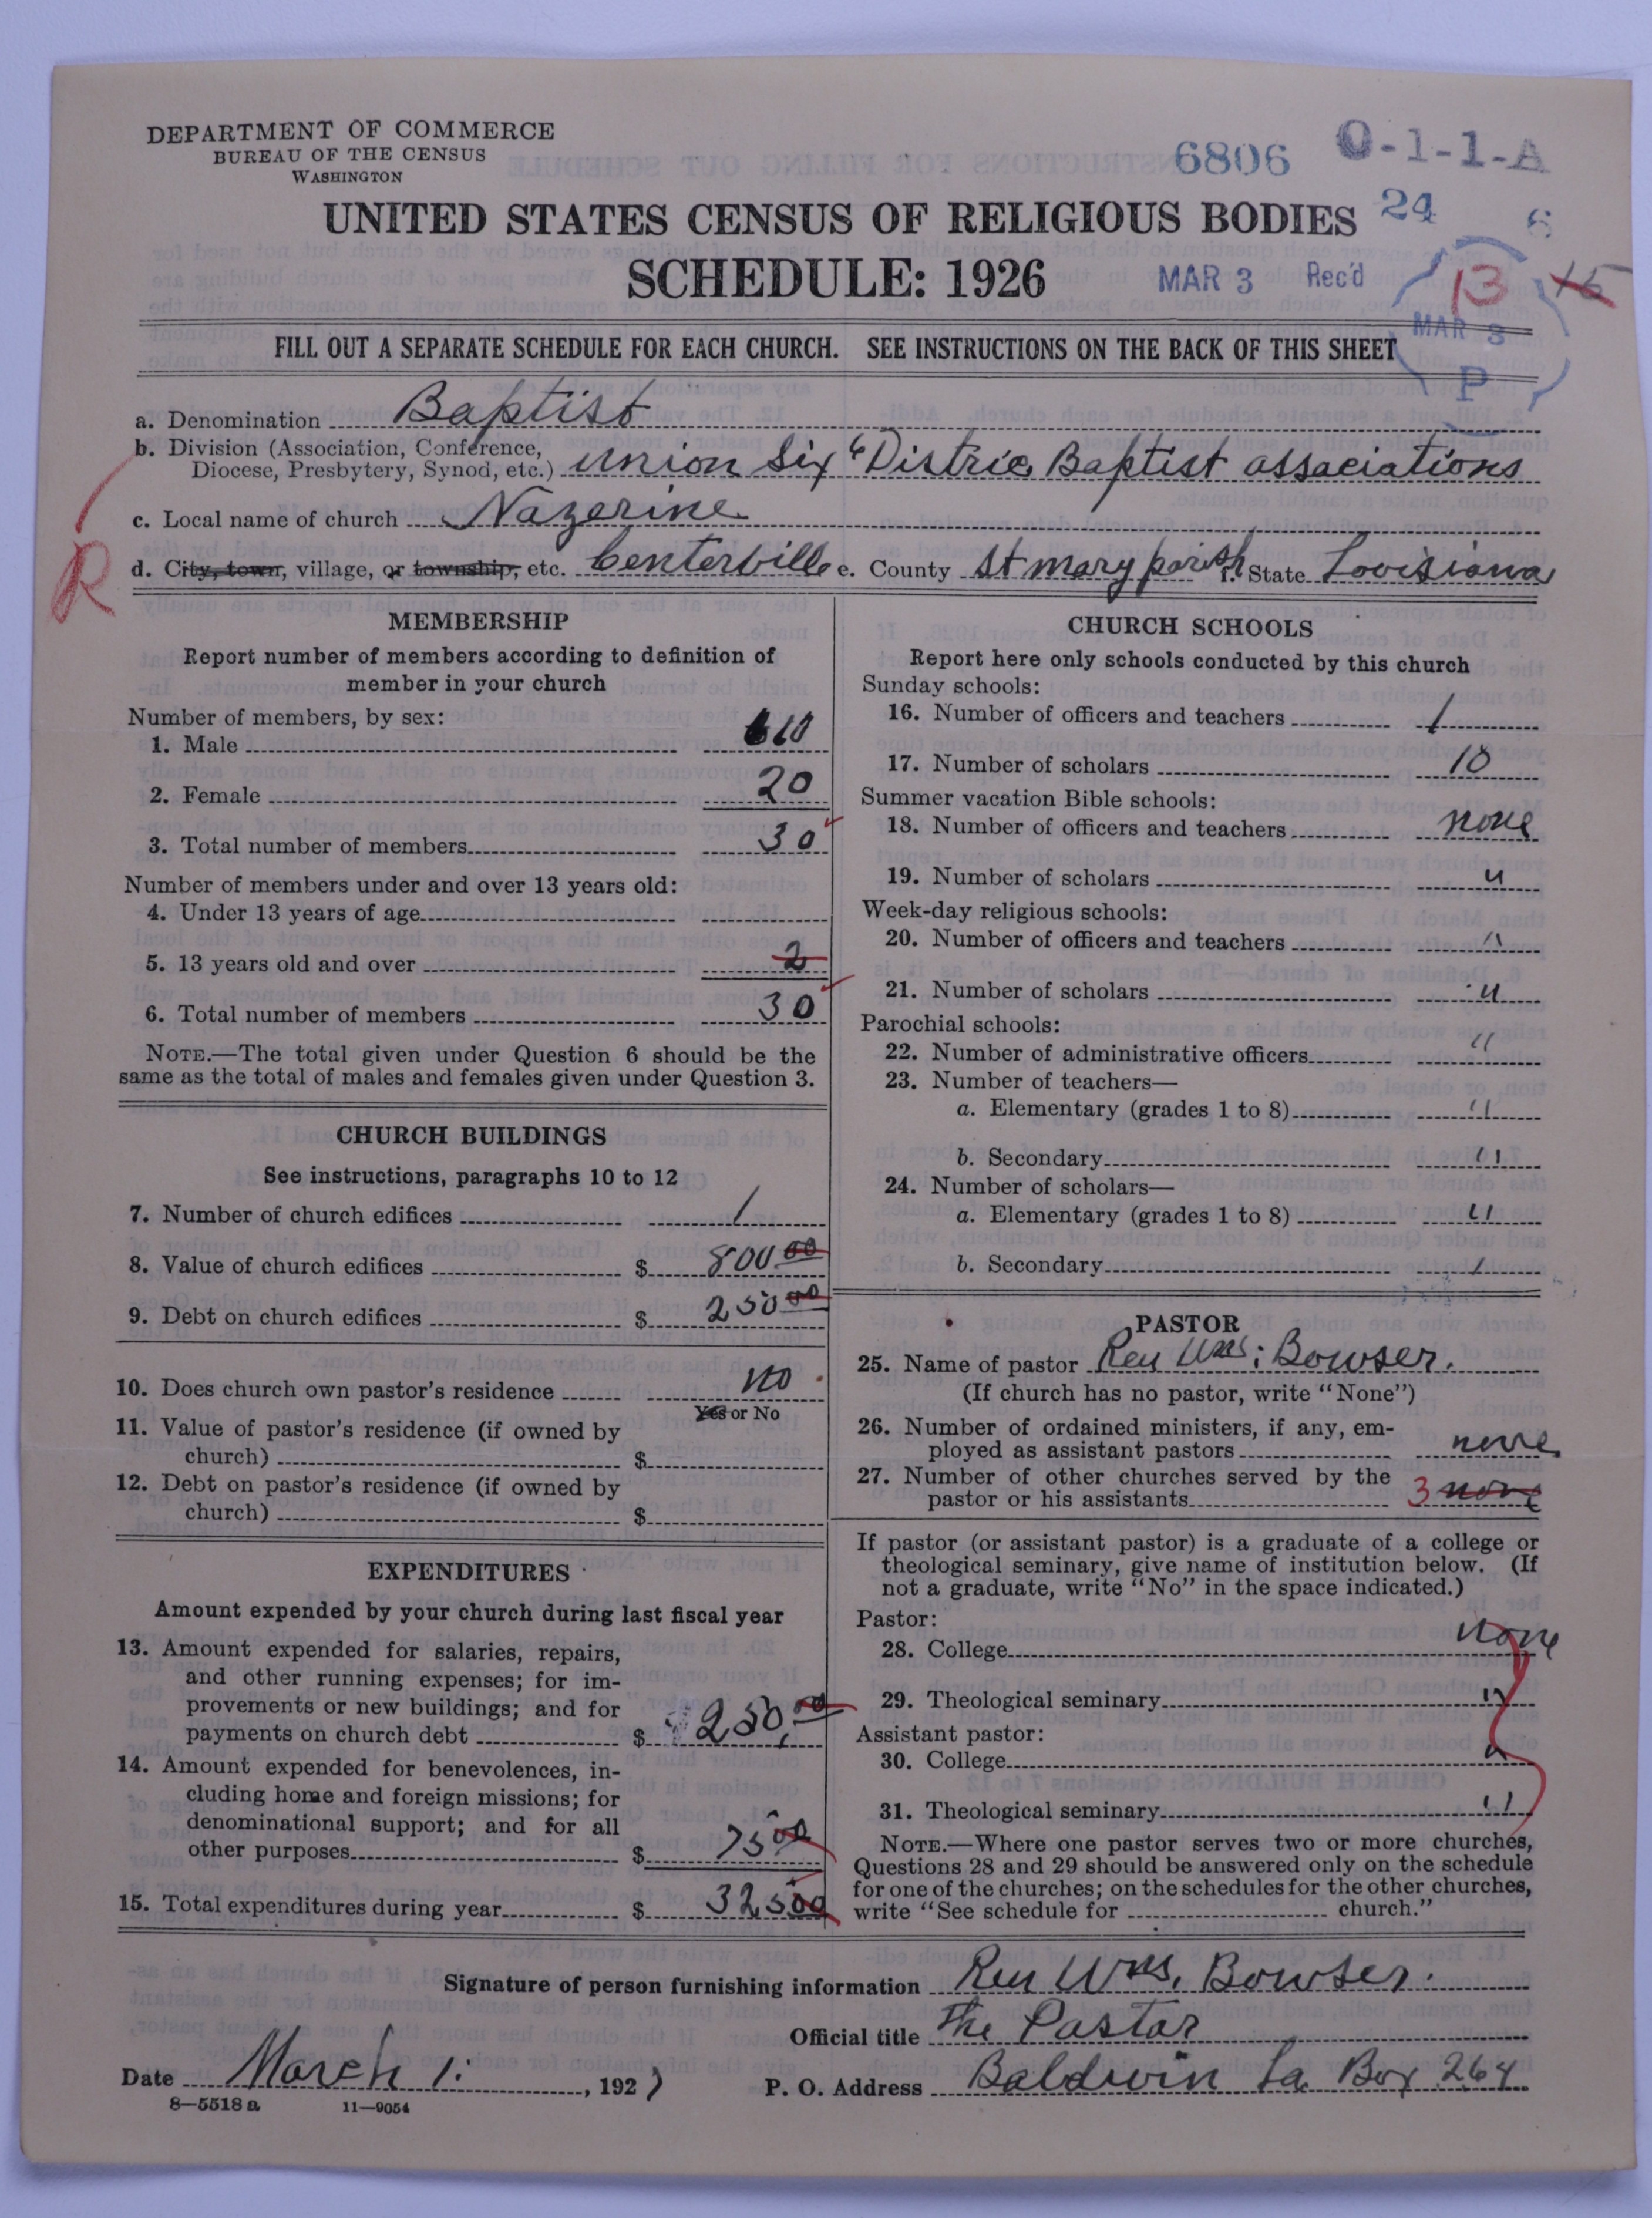 DEPARTMENT OF COMMERCE
BUREAU OF THE CENSUS
WASHINGTON
6806 0-1-1-A
UNITED STATES CENSUS OF RELIGIOUS BODIES 24 6
SCHEDULE: 1926 MAR 3 Rec'd 13 15
MAR 3
P
FILL OUT A SEPARATE SCHEDULE FOR EACH CHURCH. SEE INSTRUCTIONS ON THE BACK OF THIS SHEET
a. Denomination Baptist
b. Division (Association, Conference,
Diocese, Presbytery, Synod, etc.) union Six "Distric Baptist associations
c. Local name of church Nazerine
R
d. City, town, village, or township, etc. Centerville e. County St mary parish f. State Lovisiana
MEMBERSHIP
Report number of members according to definition of
member in your church
Number of members, by sex:
1. Male 10
2. Female 20
3. Total number of members 30
Number of members under and over 13 years old:
4. Under 13 years of age
5. 13 years old and over 2
6. Total number of members 30
NOTE.—The total given under Question 6 should be the
same as the total of males and females given under Question 3.
CHURCH BUILDINGS
See instructions, paragraphs 10 to 12
7. Number of church edifices 1
8. Value of church edifices $ 800 00
9. Debt on church edifices $ 250 00
10. Does church own pastor's residence no
Yes or No
11. Value of pastor's residence (if owned by
church) $
12. Debt on pastor's residence (if owned by
church) $
EXPENDITURES
Amount expended by your church during last fiscal year
13. Amount expended for salaries, repairs,
and other running expenses; for im-
provements or new buildings; and for
payments on church debt $ 250.00
14. Amount expended for benevolences, in-
cluding home and foreign missions; for
denominational support; and for all
other purposes $ 75 00
15. Total expenditures during year $ 325 00
CHURCH SCHOOLS
Report here only schools conducted by this church
Sunday schools:
16. Number of officers and teachers 1
17. Number of scholars 10
Summer vacation Bible schools:
18. Number of officers and teachers none
19. Number of scholars "
Week-day religious schools:
20. Number of officers and teachers "
21. Number of scholars "
Parochial schools:
22. Number of administrative officers "
23. Number of teachers—
a. Elementary (grades 1 to 8) "
b. Secondary "
24. Number of scholars—
a. Elementary (grades 1 to 8) "
b. Secondary
PASTOR
25. Name of pastor Rev Wms: Bowser.
(If church has no pastor, write "None")
26. Number of ordained ministers, if any, em-
ployed as assistant pastors none
27. Number of other churches served by the
pastor or his assistants 3 none
If pastor (or assistant pastor) is a graduate of a college or
theological seminary, give name of institution below. (If
not a graduate, write "No" in the space indicated.)
Pastor:
28. College none
29. Theological seminary "
Assistant pastor:
30. College "
31. Theological seminary "
NOTE.—Where one pastor serves two or more churches,
Questions 28 and 29 should be answered only on the schedule
for one of the churches; on the schedules for the other churches,
write "See schedule for church."
Signature of person furnishing information Rev Wms. Bowser.
Official title The Pastor
Date March 1: , 1927 P. O. Address Baldwin La Box 264
8—5518 a 11—9054